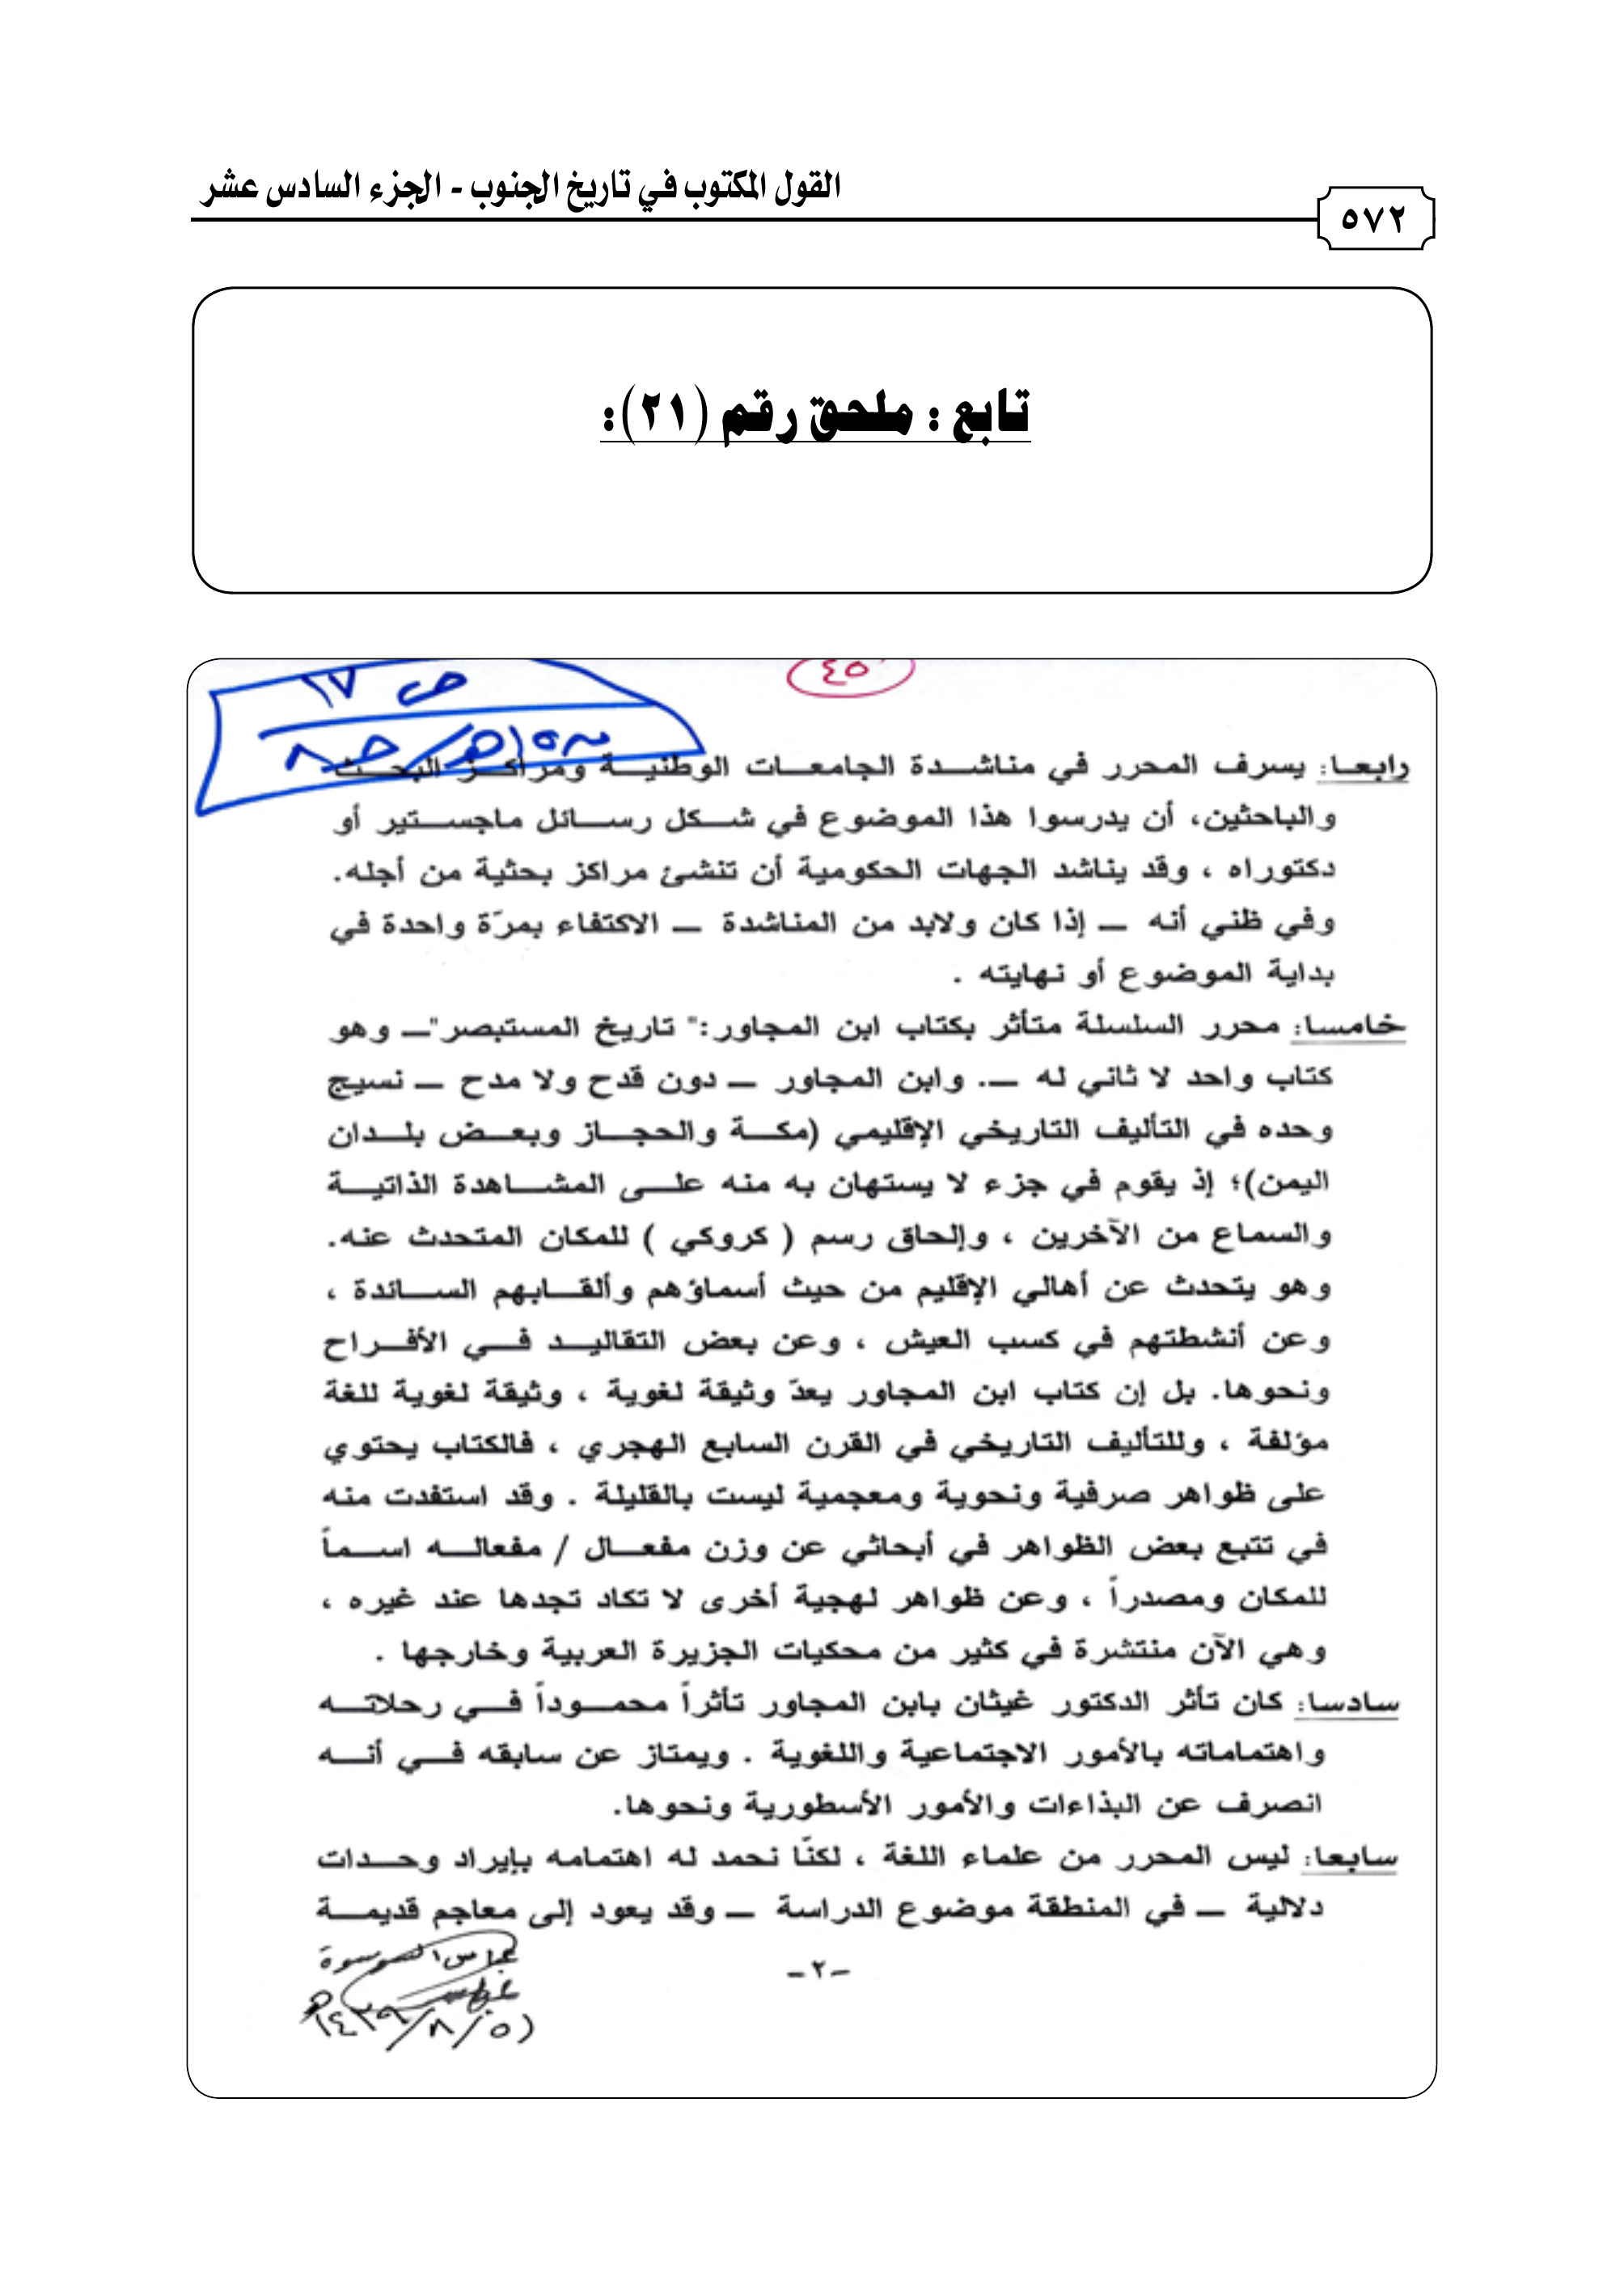 القول المكتوب في تاريخ الجنوب - الجزء السادس عشر
٥٧٢
تابع : ملحق رقم (٢١):
٤٥
ص ١٧
رابعا: يسرف المحرر في مناشدة الجامعات الوطنية ومراكز البحث
والباحثين، أن يدرسوا هذا الموضوع في شكل رسائل ماجستير أو
دكتوراه ، وقد يناشد الجهات الحكومية أن تنشئ مراكز بحثية من أجله.
وفي ظني أنه – إذا كان ولابد من المناشدة – الاكتفاء بمرّة واحدة في
بداية الموضوع أو نهايته .
خامسا: محرر السلسلة متأثر بكتاب ابن المجاور:" تاريخ المستبصر"– وهو
كتاب واحد لا ثاني له –. وابن المجاور – دون قدح ولا مدح – نسيج
وحده في التأليف التاريخي الإقليمي (مكة والحجاز وبعض بلدان
اليمن)؛ إذ يقوم في جزء لا يستهان به منه على المشاهدة الذاتية
والسماع من الآخرين ، وإلحاق رسم ( كروكي ) للمكان المتحدث عنه.
وهو يتحدث عن أهالي الإقليم من حيث أسماؤهم وألقابهم السائدة ،
وعن أنشطتهم في كسب العيش ، وعن بعض التقاليد في الأفراح
ونحوها. بل إن كتاب ابن المجاور يعدّ وثيقة لغوية ، وثيقة لغوية للغة
مؤلفة ، وللتأليف التاريخي في القرن السابع الهجري ، فالكتاب يحتوي
على ظواهر صرفية ونحوية ومعجمية ليست بالقليلة . وقد استفدت منه
في تتبع بعض الظواهر في أبحاثي عن وزن مفعال / مفعاله اسماً
للمكان ومصدراً ، وعن ظواهر لهجية أخرى لا تكاد تجدها عند غيره ،
وهي الآن منتشرة في كثير من محكيات الجزيرة العربية وخارجها .
سادسا: كان تأثر الدكتور غيثان بابن المجاور تأثراً محموداً في رحلاته
واهتماماته بالأمور الاجتماعية واللغوية . ويمتاز عن سابقه في أنه
انصرف عن البذاءات والأمور الأسطورية ونحوها.
سابعا: ليس المحرر من علماء اللغة ، لكنّا نحمد له اهتمامه بإيراد وحدات
دلالية – في المنطقة موضوع الدراسة – وقد يعود إلى معاجم قديمة
عباس السوسوة
-٢-